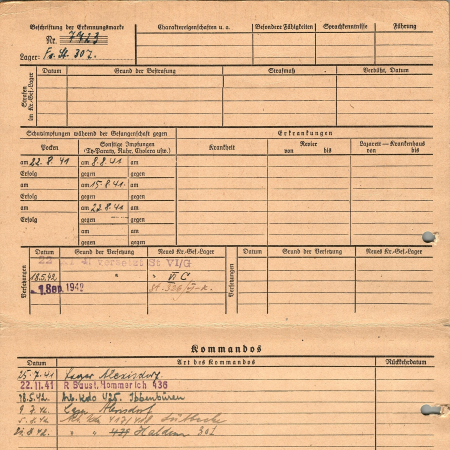 Beschriftung der Erkennungsmarke
Nr. 7723
Lager: Fr. St. 307.
Charaktereigenschaften u. a.
Besondere Fähigkeiten
Sprachkenntnisse
Führung
Strafen im Kr.-Gef.-Lager
Datum
Grund der Bestrafung
Strafmaß
Verbüßt, Datum
Schutzimpfungen während der Gefangenschaft gegen
Erkrankungen
Pocken
Sonstige Impfungen
(Ty-Paraty, Ruhr, Cholera usw.)
Krankheit
Revier
von bis
Lazarett — Krankenhaus
von bis
am 22. 8. 41 am 8.8.41 am
Erfolg gegen gegen
am am 15.8.41 am
Erfolg gegen gegen
am am 22.8.41 am
Erfolg gegen gegen
am am
gegen gegen
am am
gegen gegen
Versetzungen
Datum
Grund der Versetzung
Neues Kr.-Gef.-Lager
Versetzungen
Datum
Grund der Versetzung
Neues Kr.-Gef.-Lager
22 versetzt St VI/G
18.5.42 " " VI C
-1. Sep. 1942 St. 326/VI-K.
Kommandos
Datum
Art des Kommandos
Rückkehrdatum
25.7.41 Lager Alexisdorf
22.11.41 R Baust. Hommerich 436
18.5.42. Arb. Kdo 425. Ibbenbüren
9.7.42.
" " 479 Haldem 301